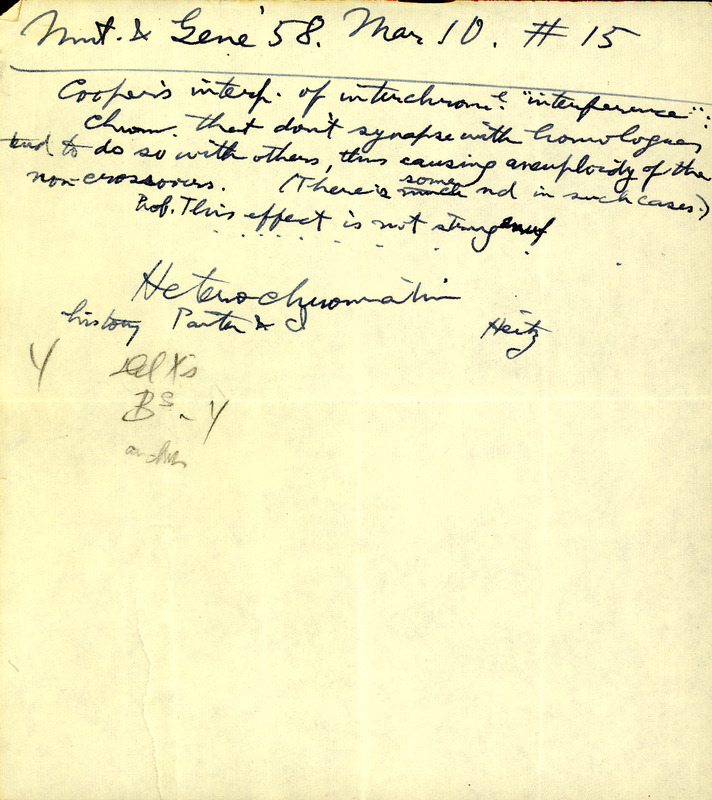 Mut. & Gene '58. Mar 10. # 15
Cooper's interp. of interchrom'l. "interference":
Chrom. that don't synapse with homologues
tend to do so with others, thus causing aneuploidy of the
non-crossovers. (There is some nd in such cases.)
Prob. This effect is not strong enuf
Heterochromatin
history Painter & Heitz
Y del X's
Bs - Y